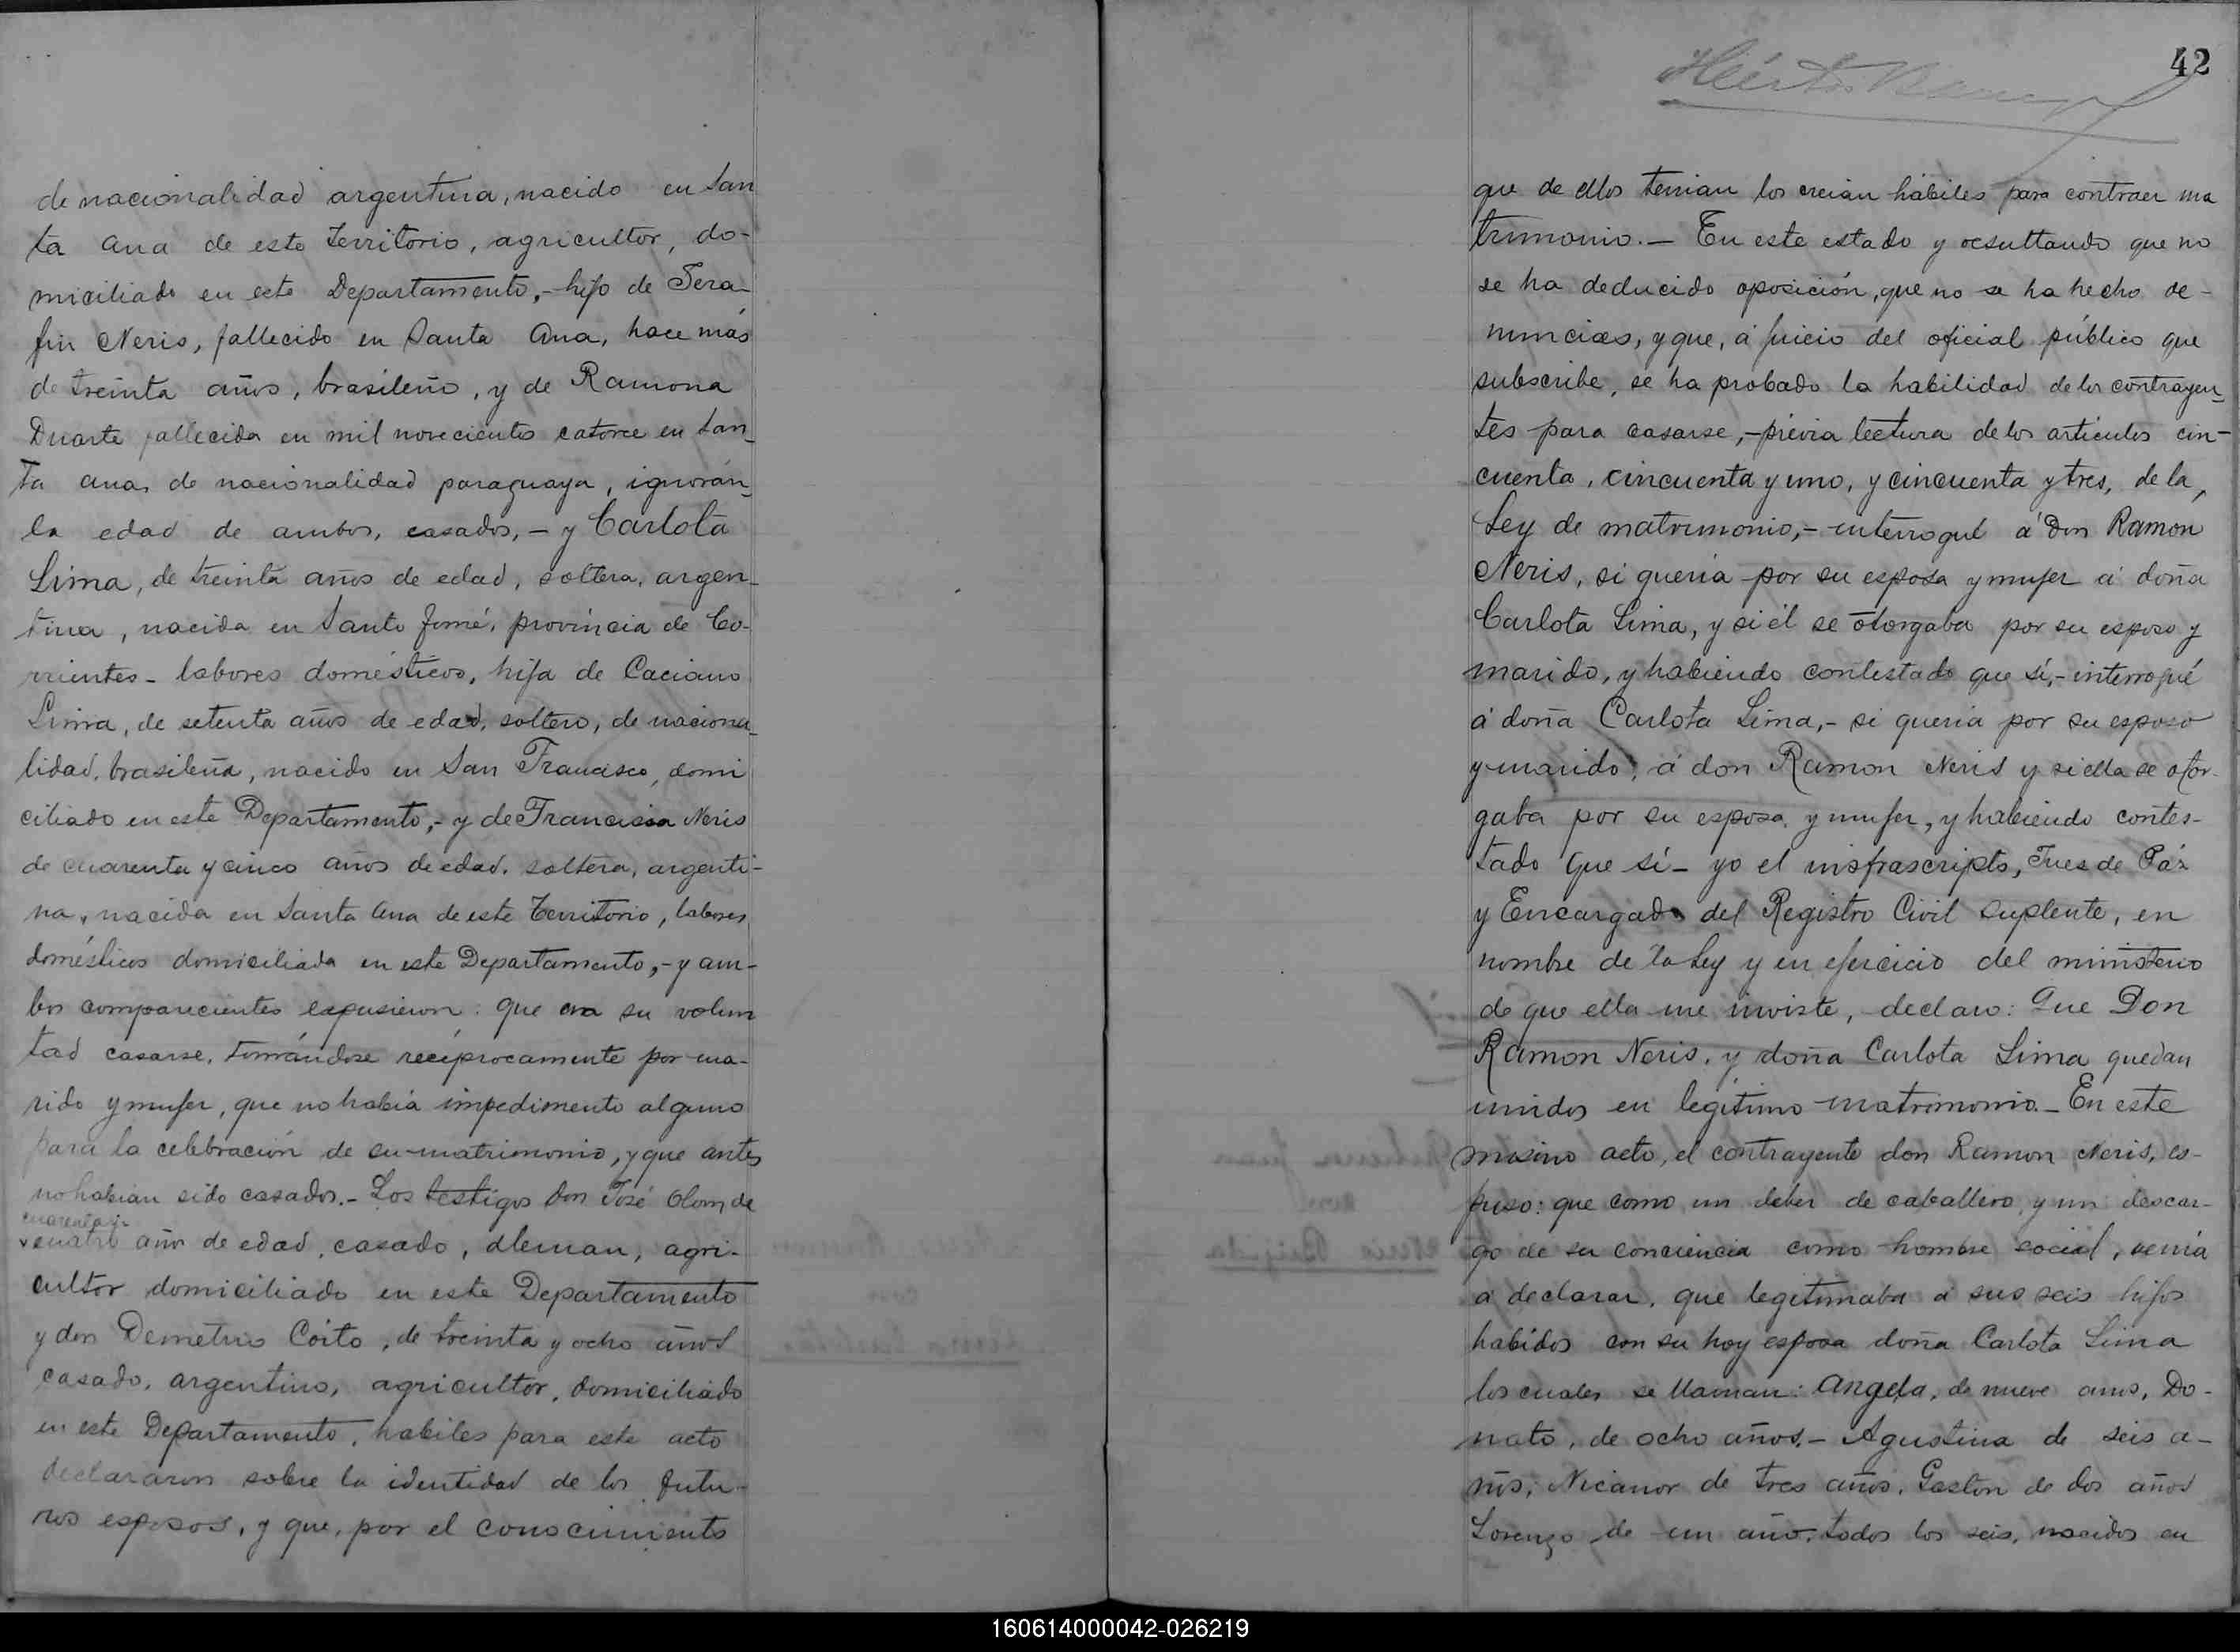 de nacionalidad argentina, nacido en San
ta Ana de este Territorio, agricultor, do-
miciliado en este Departamento,- hijo de Sera-
fin Neris, fallecido en Santa Ana, hace más
de treinta años, brasileño, y de Ramona
Duarte fallecida en mil novecientos catorce en San_
ta Ana, de nacionalidad paraguaya, ignorán_
la edad de ambos, casados,- y Carlota
Lima, de treinta años de edad, soltera, argen_
tina, nacida en Santo Tomé, provincia de Co-
rrientes - labores domésticos, hija de Caciano
Lima, de setenta años de edad, soltero, de naciona_
lidad, brasileña, nacido en San Francisco, domi
ciliado en este Departamento,- y de Francisca Neris
de cuarenta y cinco años de edad, soltera, argenti-
na, nacida en Santa Ana de este Territorio, labores
domésticos domiciliada en este Departamento,- y am-
bos comparecientes expusieron: que era su volun
tad casarse, tomándose recíprocamente por ma-
rido y mujer, que no había impedimento alguno
para la celebración de su matrimonio, y que antes
no habian sido casados.- Los testigos don José de
cuarenta y
cuatro años de edad, casado, aleman, agri-
cultor domiciliado en este Departamento
y don Demetrio Coito, de treinta y ocho años
casado, argentino, agricultor, domiciliado
en este Departamento, habiles para este acto
declararon sobre la identidad de los futu-
ros esposos, y que, por el conocimiento
42
que de ellos tenian los creian hábiles para contraer ma
trimonio.- En este estado y resultando que no
se ha deducido oposición, que no se ha hecho de-
nuncias, y que, á juicio del oficial público que
subscribe, se ha probado la habilidad de los contrayen_
tes para casarse,- prévia lectura de los artículos cin-
cuenta, cincuenta y uno, y cincuenta y tres, de la
Ley de matrimonio,- interrogué á Don Ramón
Neris, si quería por su esposa y mujer á doña
Carlota Lima, y si él se otorgaba por su esposo y
marido, y habiendo contestado que sí,- interrogué
á doña Carlota Lima,- si quería por su esposo
y marido, á don Ramon Neris y si ella se otor-
gaba por su esposa y mujer, y habiendo contes-
tado que sí - yo el infrascripto, Jues de Páz
y Encargado del Registro Civil suplente, en
nombre de la Ley y en ejercicio del ministerio
de que ella me inviste, declaro: Que Don
Ramon Neris, y doña Carlota Lima quedan
unidos en legítimo matrimonio.- En este
mismo acto, el contrayente don Ramon Neris, es-
puso: que como un deber de caballero, y un descar-
go de su conciencia como hombre social, venía
á declarar, que legitimaba á sus seis hijos
habidos con su hoy esposa doña Carlota Lima
los cuales se llaman: Angela, de nueve anos, Do-
nato, de ocho años.- Agustina de seis a-
ños, Nicanor de tres años, Gaston de dos años
Lorenzo de un año, todos los seis, nacidos en
160614000042-026219